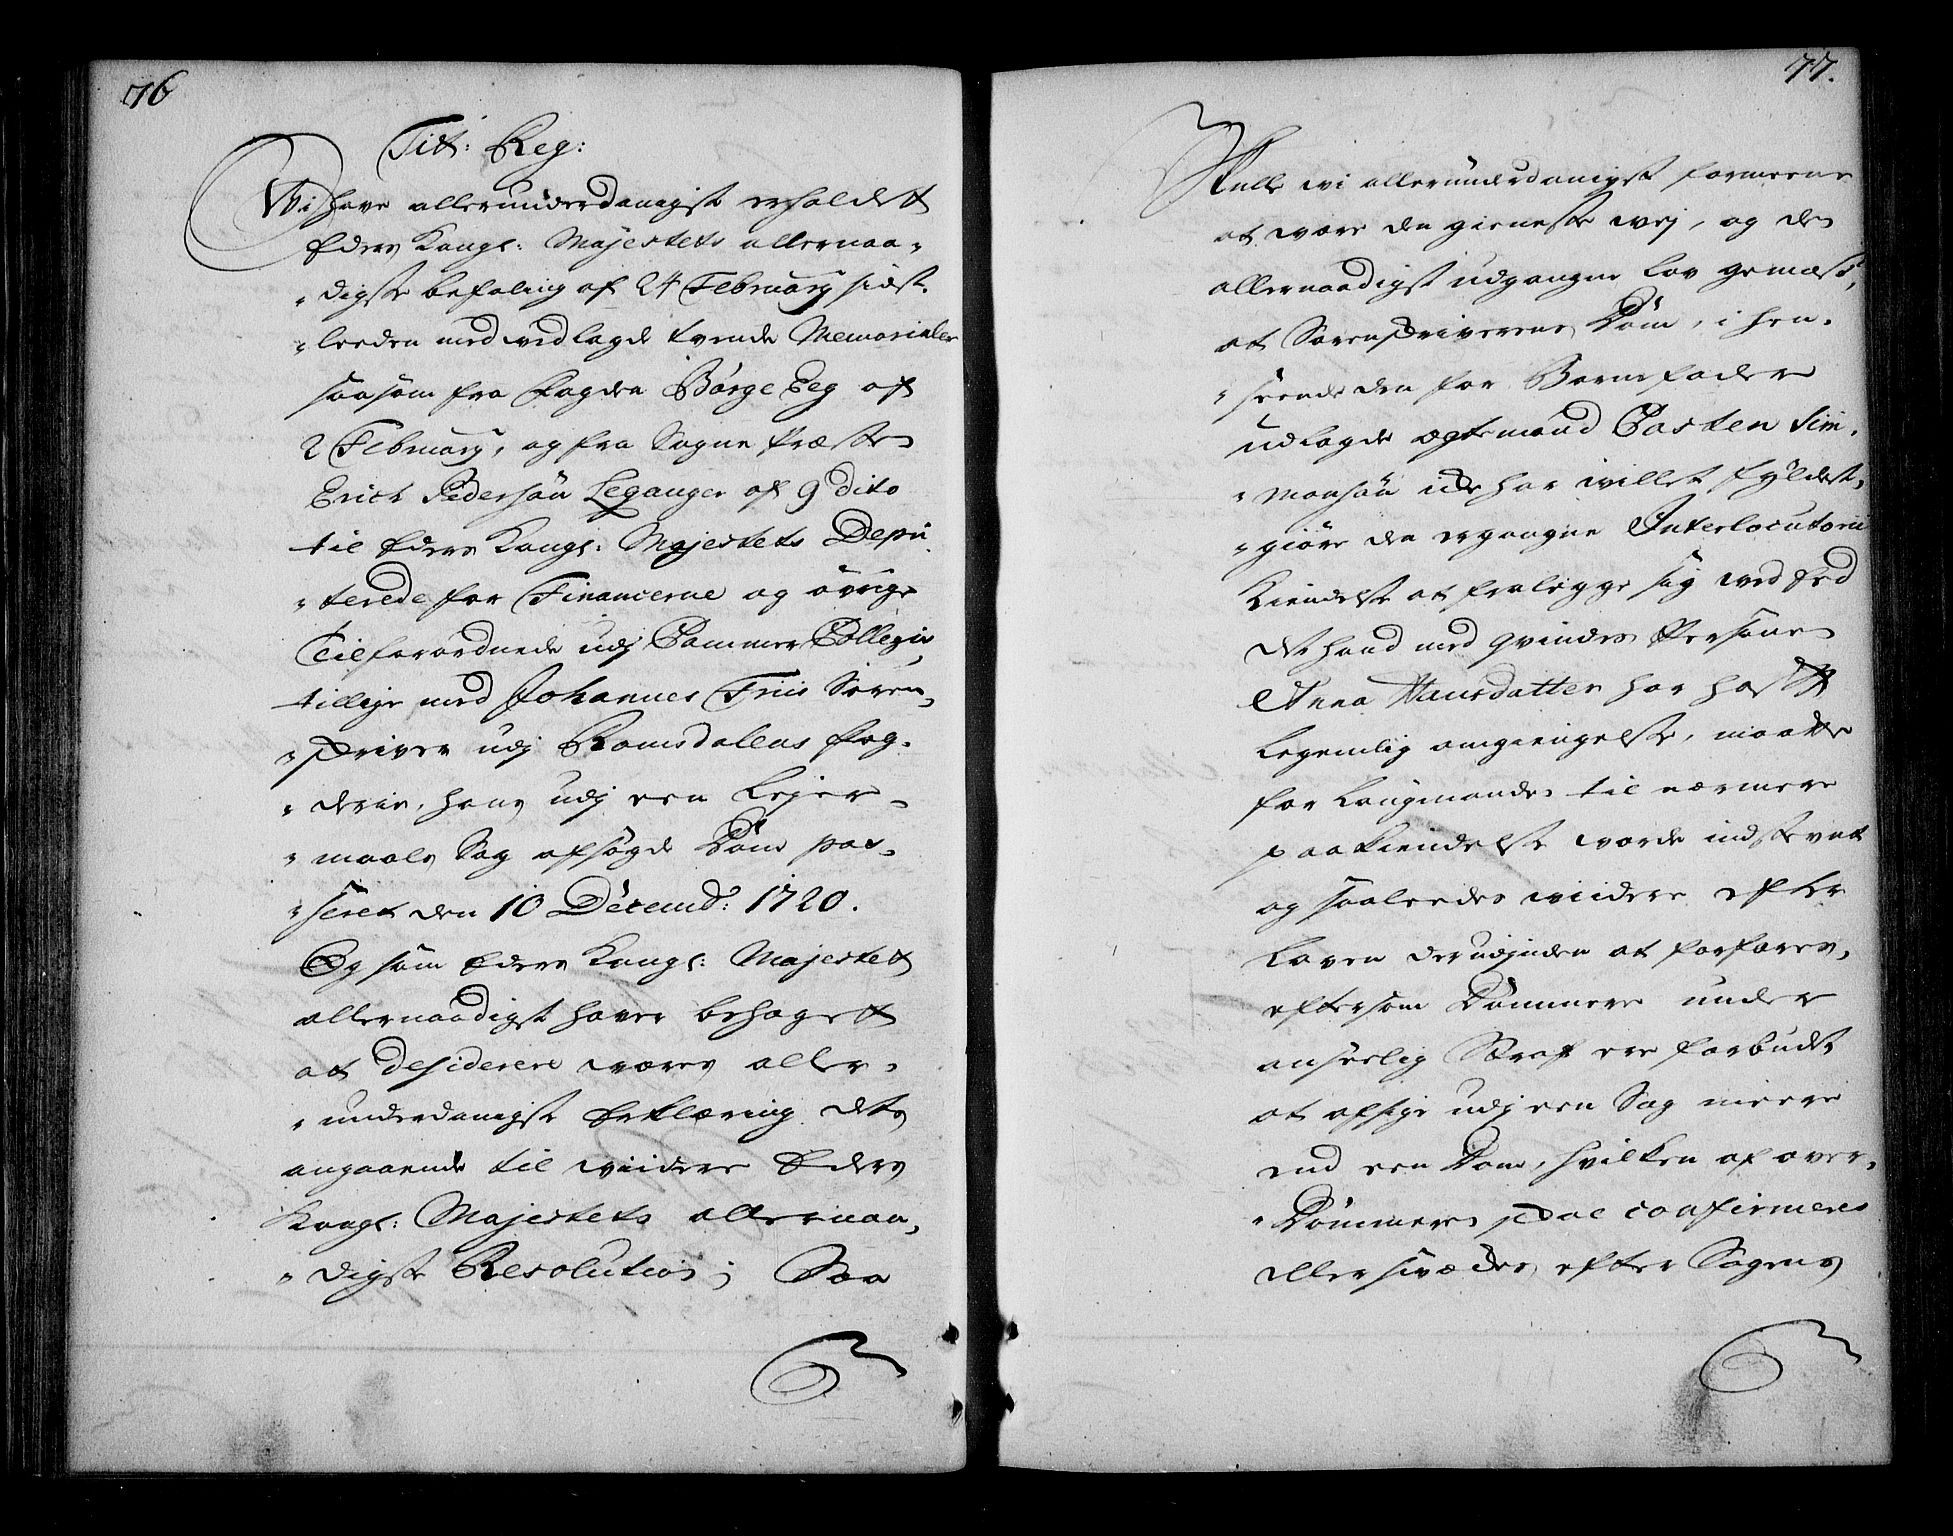 76
Tit: Reg:
Wi have allerunderdanigst erholdett
Eders Kongl: Majestets allernaa-
digste befaling af 24 February sidst-
leeden med vedlagde tvende Memorialer
saasom fra Fogden Børge Eeg af
2 February, og fra Sogne Præsten
Erich Pedersøn Leganger af 9 dito
til Eders Kongl: Majestets Depu
terede for Financerne og øvrige
Tilforordnede udj Cammer Collegio,
tillige med Johannes Friis Soren-
skriver udj Romsdalens fog-
derie, hans udj een Lejer-
maals Sag afsagde Dom pas-
seret den 10 Decemb: 1720.
Og som Eders Kongl: Majestet
allernaadigst haver behagett
at desiderere vores aller-
underdanigste Erklæring dets
angaaende til viidere Eders
Kongl: Majestets allernaa-
digste Resolution; Saa
77.
Skulle wi allerunderdanigst formeene
at være den gieneste vej, og den
allernaadigst udgangne Lov gemæss,
at Sorenskriverens Dom, i hen-
seende den for Barnefader
udlagde ægtemand Casten Sim-
monsøn icke har villet fyldest-
giøre den ergangne Interlocutorie
Kiendelse at fralegge sig ved Eed
det hand med qvindes Persohnen
Anna Hansdatter har hafft
Legemlig omgiengelse, maatte
for Laugmanden til nærmere
paakiendelse worde indstevnt
og saaleedes viidere efter
Loven derudjinden at forfares,
eftersom Dommere under
anseelig Straf ere forbudt
at afsige udj een Sag meere
end een Dom, hvilken af over-
Dommeren skal confirmeres
eller svæckes, efter Sagens